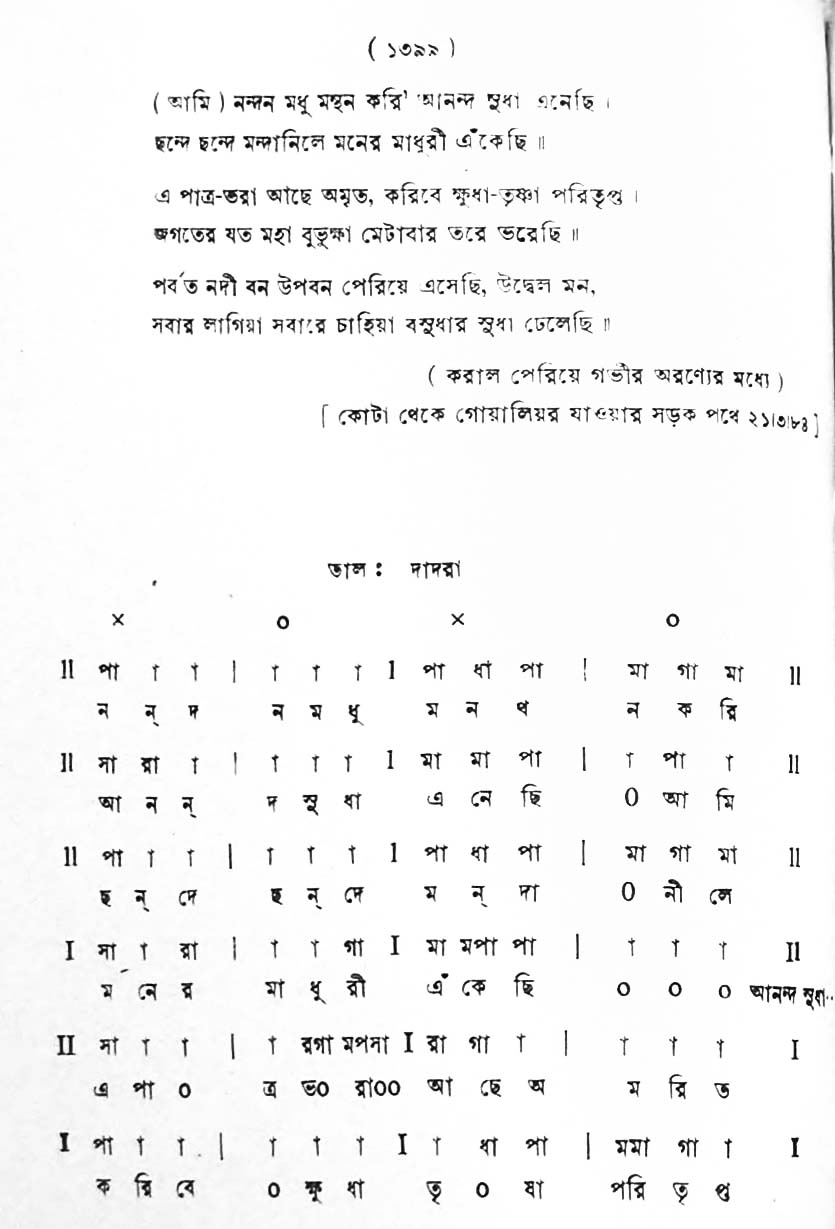 ( ১৩৯৯ )
( আমি ) নন্দন মধু মন্থন করি' আনন্দ সুধা এনেছি ।
ছন্দে ছন্দে মন্দানিলে মনের মাধুরী এঁকেছি ॥
এ পাত্র-ভরা আছে অমৃত, করিবে ক্ষুধা-তৃষ্ণা পরিতৃপ্ত ।
জগতের যত মহা বুভুক্ষা মেটাবার তরে ভরেছি ॥
পর্বত নদী বন উপবন পেরিয়ে এসেছি, উদ্বেল মন,
সবার লাগিয়া সবারে চাহিয়া বসুধার সুধা ঢেলেছি ॥
( করাল পেরিয়ে গভীর অরণ্যের মধ্যে )
[ কোটা থেকে গোয়ালিয়র যাওয়ার সড়ক পথে ২১।৩।৮৪ ]
তাল : দাদরা
× ০ × ০
II পা া া | া া া I পা ধা পা | মা গা মা II
ন ন্ দ ন ম ধু ম ন থ ন ক রি
II সা রা া | া া া I মা মা পা | া পা া II
আ ন ন্ দ সু ধা এ নে ছি ০ আ মি
II পা া া | া া া I পা ধা পা | মা গা মা II
ছ ন্ দে ছ ন্ দে ম ন্ দা ০ নী লে
I সা া রা | া া গা I মা মপা পা | া া া II
ম নের মা ধু রী এঁ কে ছি ০ ০ ০ আনন্দ সুধা··
II সা া া | া রগা মপমা I রা গা া | া া া I
এ পা ০ ত্র ভ০ রা০০ আ ছে অ ম রি ত
I পা া া | া া া I া ধা পা | মমা গা া I
ক রি বে ০ ক্ষু ধা তৃ ০ ষা পরি তৃ প্ত